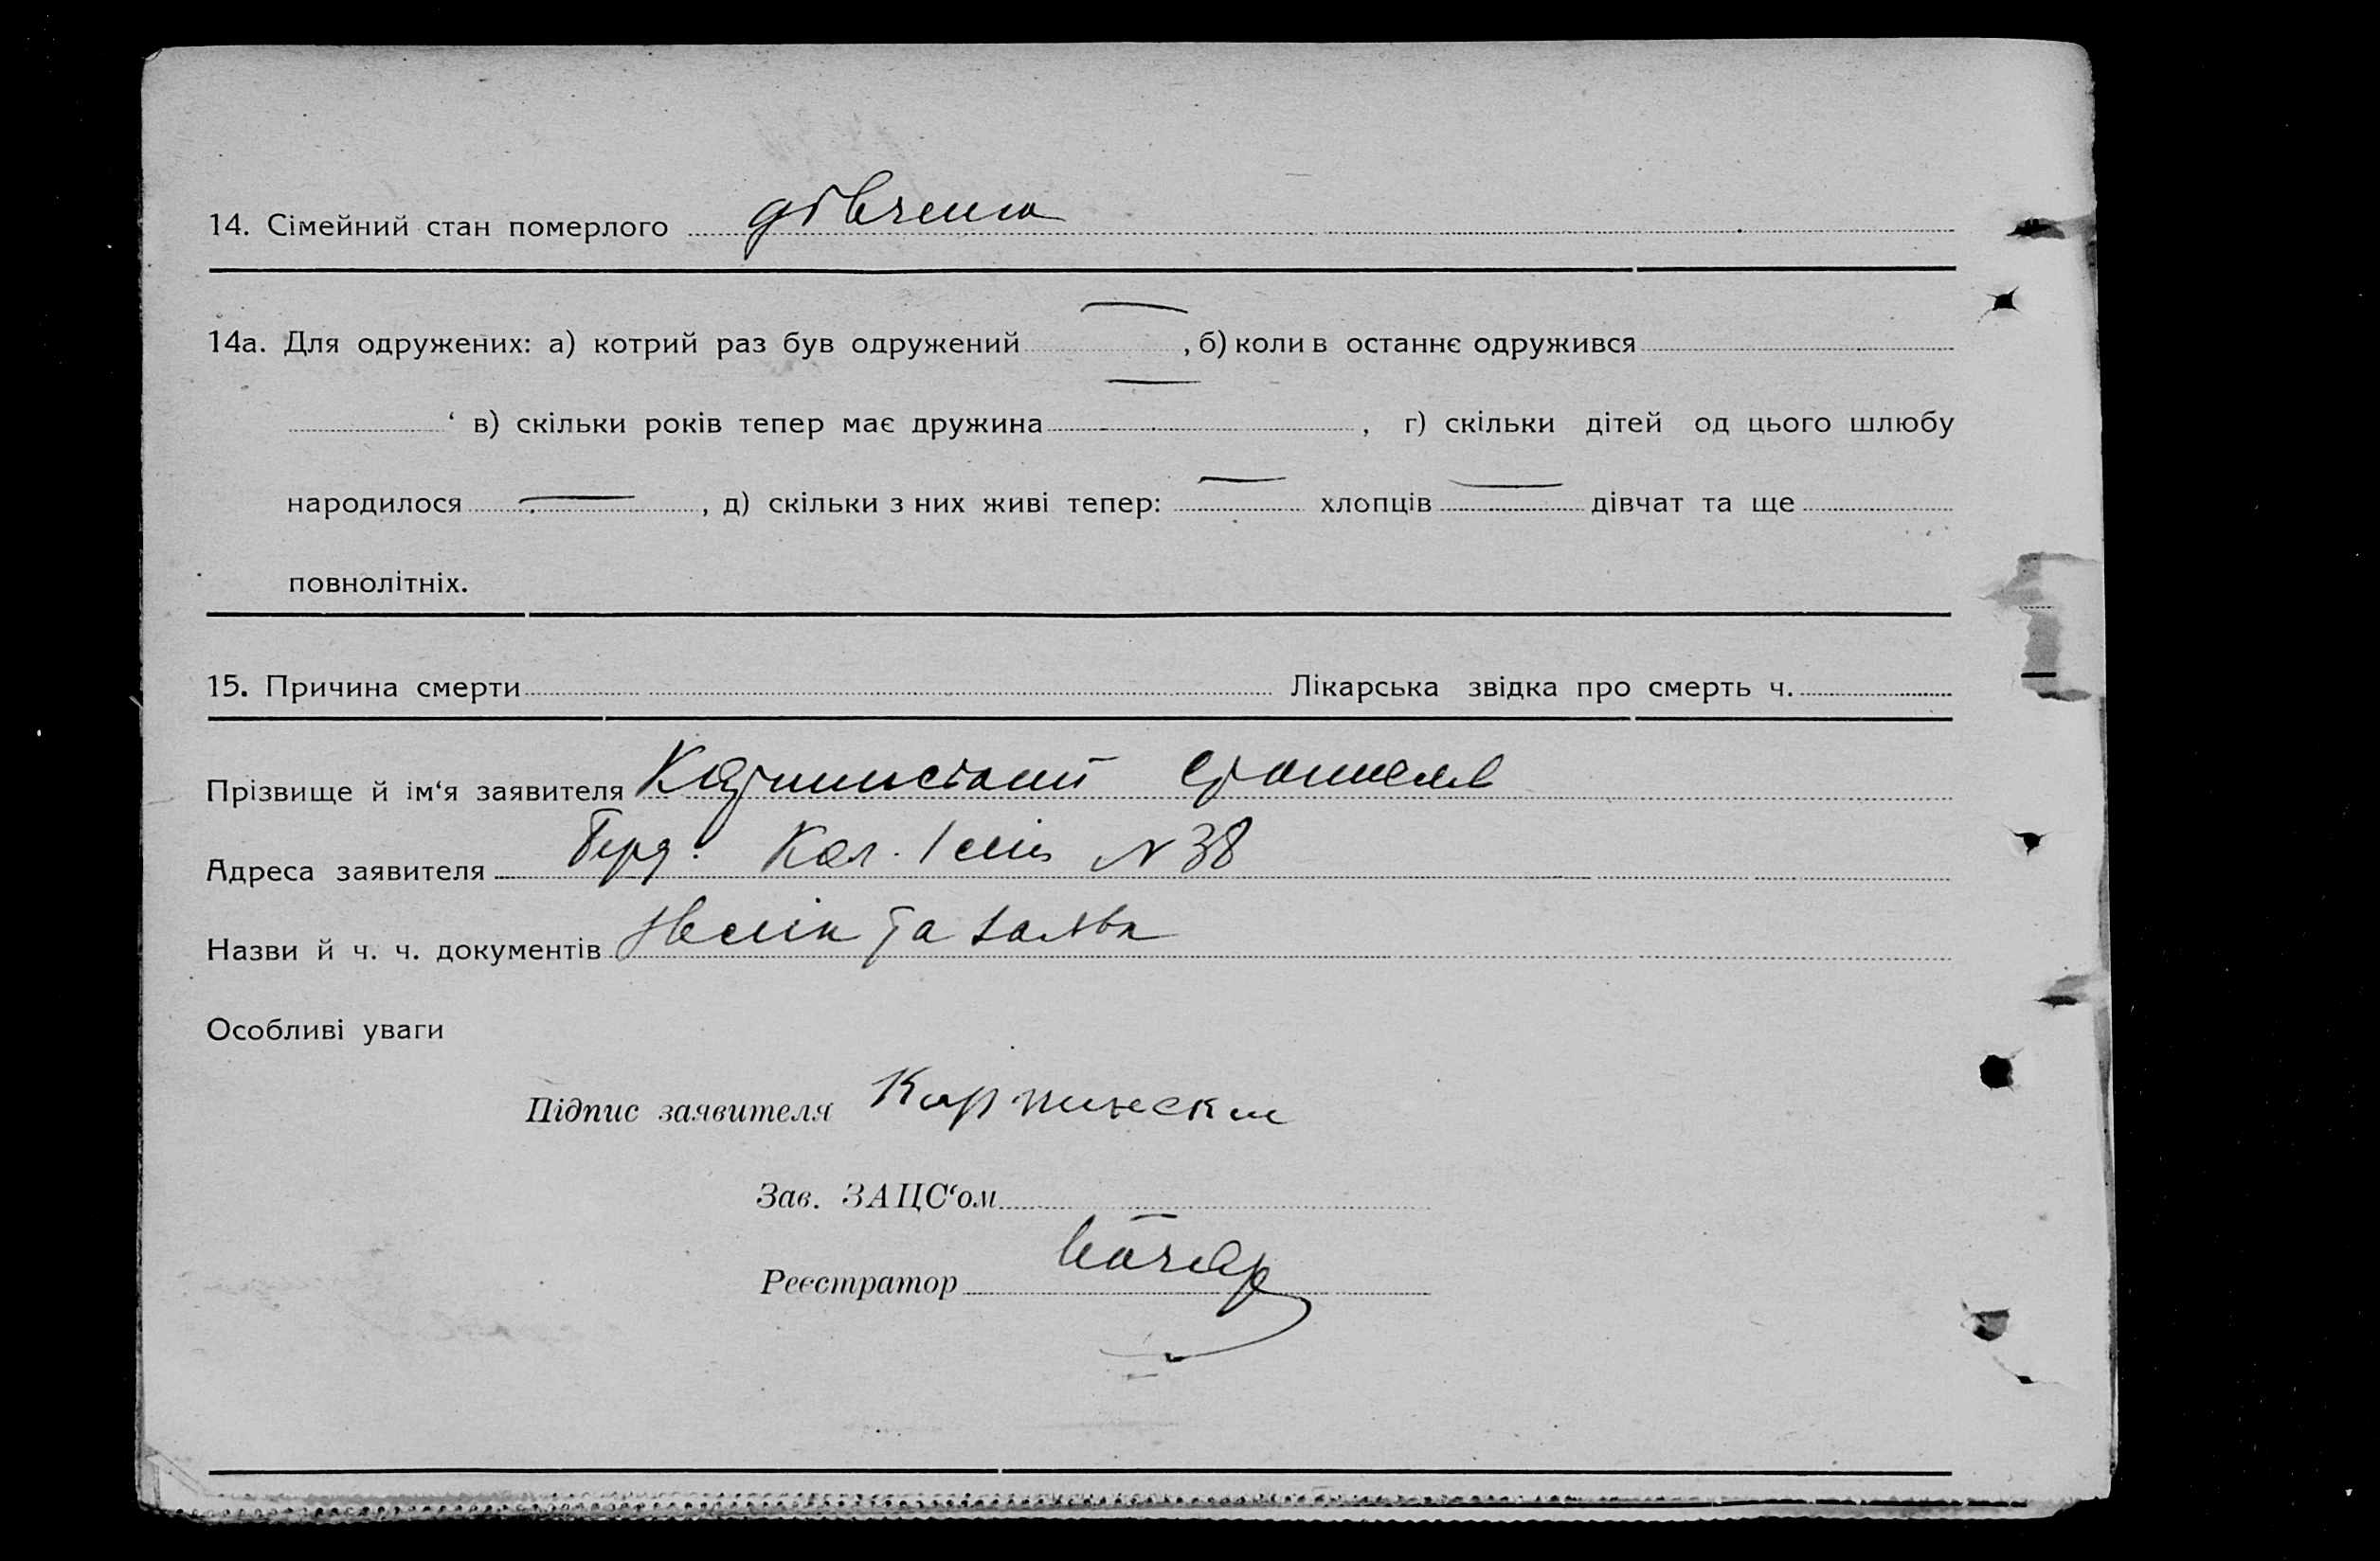 14. Сімейний стан померлого дівчина
14а. Для одружених: а) котрий раз був одружений —, б) коли в останнє одружився
‘ в) скільки років тепер має дружина —, г) скільки дітей од цього шлюбу
народилося —, д) скільки з них живі тепер: — хлопців — дівчат та ще
повнолітніх.
15. Причина смерти Лікарська звідка про смерть ч.
Прізвище й ім‘я заявителя
Адреса заявителя Берд. Кал. N 38
Назви й ч. ч. документів та заява
Особливі уваги
Підпис заявителя
Зав. ЗАЦС‘ом
Реєстратор